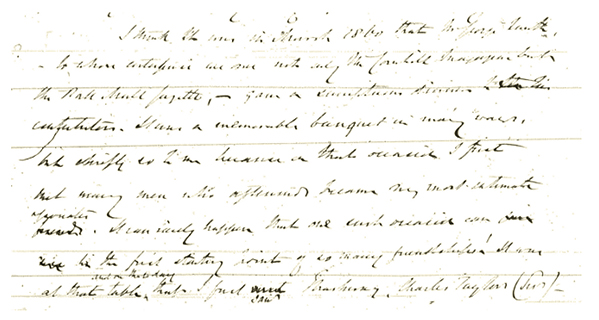 I think it was in January 1860 that Mr George Smith,
- to whose enterprise we owe not only the Cornhill Magazine but
the Pall Mall Gazette, - gave a sumptuous dinner to his
contributors. It was a memorable banquet in many ways,
but chiefly so to me because on that occasion I first
met many men who afterwards became my most intimate
associates
friends. It can rarely happen that one such occasion can
be the first starting point of so many friendships! It was
and on that day
at that table, that I first met saw Thackeray, Charles Taylor (Sir) -